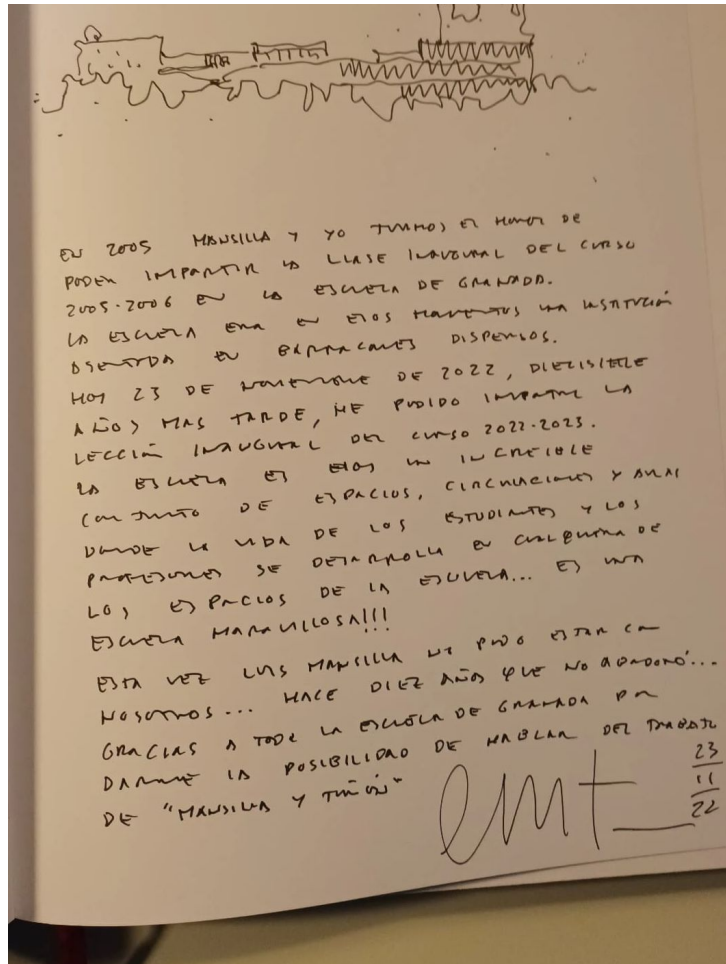 EN 2005 MANSILLA Y YO TUVIMOS EL HONOR DE
PODER IMPARTIR LA CLASE INAUGURAL DEL CURSO
2005-2006 EN LA ESCUELA DE GRANADA.
LA ESCUELA ERA EN ESOS MOMENTOS UNA INSTITUCIÓN
ASENTADA EN BARRACONES DISPERSOS.
HOY 23 DE NOVIEMBRE DE 2022, DIEZISIETE
AÑOS MAS TARDE, HE PODIDO IMPARTIR LA
LECCIÓN INAUGURAL DEL CURSO 2022-2023.
LA ESCUELA ES UN INCREIBLE
CONJUNTO DE ESPACIOS, CIRCULACIONES Y AULAS
DONDE LA VIDA DE LOS ESTUDIANTES Y LOS
PROFESORES SE DESARROLLA EN CUALQUIERA DE
LOS ESPACIOS DE LA ESCUELA... ES UNA
ESCUELA MARAVILLOSA!!!
ESTA VEZ LUIS MANSILLA NO PUDO ESTAR CON
NOSOTROS... HACE DIEZ AÑOS QUE NOS ABANDONÓ...
GRACIAS A TODA LA ESCUELA DE GRANADA POR
DARME LA POSIBILIDAD DE HABLAR DEL TRABAJO
DE "MANSILLA Y TUÑÓN"
23
11
22